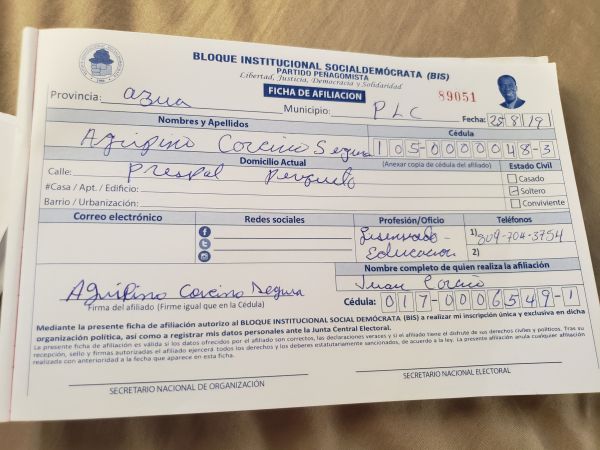 BLOQUE INSTITUCIONAL SOCIALDEMÓCRATA (BIS)
PARTIDO PEÑAGOMISTA
Libertad, Justicia, Democracia y Solidaridad
FICHA DE AFILIACION
89051
Provincia: azua Municipio: PLC Fecha: 25/8/19
Nombres y Apellidos Cédula
Agripino Corcino Segura 105-0000048-3
Domicilio Actual (Anexar copia de cédula del afiliado) Estado Civil
Calle: Casado
#Casa / Apt. / Edificio: Soltero
Barrio / Urbanización: Conviviente
Correo electrónico Redes sociales Profesión/Oficio Teléfonos
Lisenciado - 1) 809-704-3754
Educacion 2)
Nombre completo de quien realiza la afiliación
Juan Corcino
Agripino Corcino Segura
Firma del afiliado (Firme igual que en la Cédula) Cédula: 017-0006549-1
Mediante la presente ficha de afiliación autorizo al BLOQUE INSTITUCIONAL SOCIAL DEMÓCRATA (BIS) a realizar mi inscripción única y exclusiva en dicha
organización política, así como a registrar mis datos personales ante la Junta Central Electoral.
La presente ficha de afiliación es valida si los datos ofrecidos por el afiliado son correctos, las declaraciones veraces y si el afiliado tiene el disfrute de sus derechos civiles y políticos. Tras su
recepción, sello y firmas autorizadas el afiliado ejercerá todos los derechos y los deberes estatutariamente sancionados, de acuerdo a la ley. La presente afiliación anula cualquier afiliación
realizada con anterioridad a la fecha que aparece en esta ficha.
SECRETARIO NACIONAL DE ORGANIZACIÓN SECRETARIO NACIONAL ELECTORAL